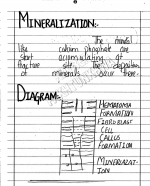 MINERALIZATION:-
The minerals
like calcium phosphate are
start accumulating at
fracture site. The deposition
of minerals occur there.
DIAGRAM:-
HEMATOMA
FORMATION
FIBROBLAST
CELL
CALLUS
FORMATION
MINERALIZAT-
ION